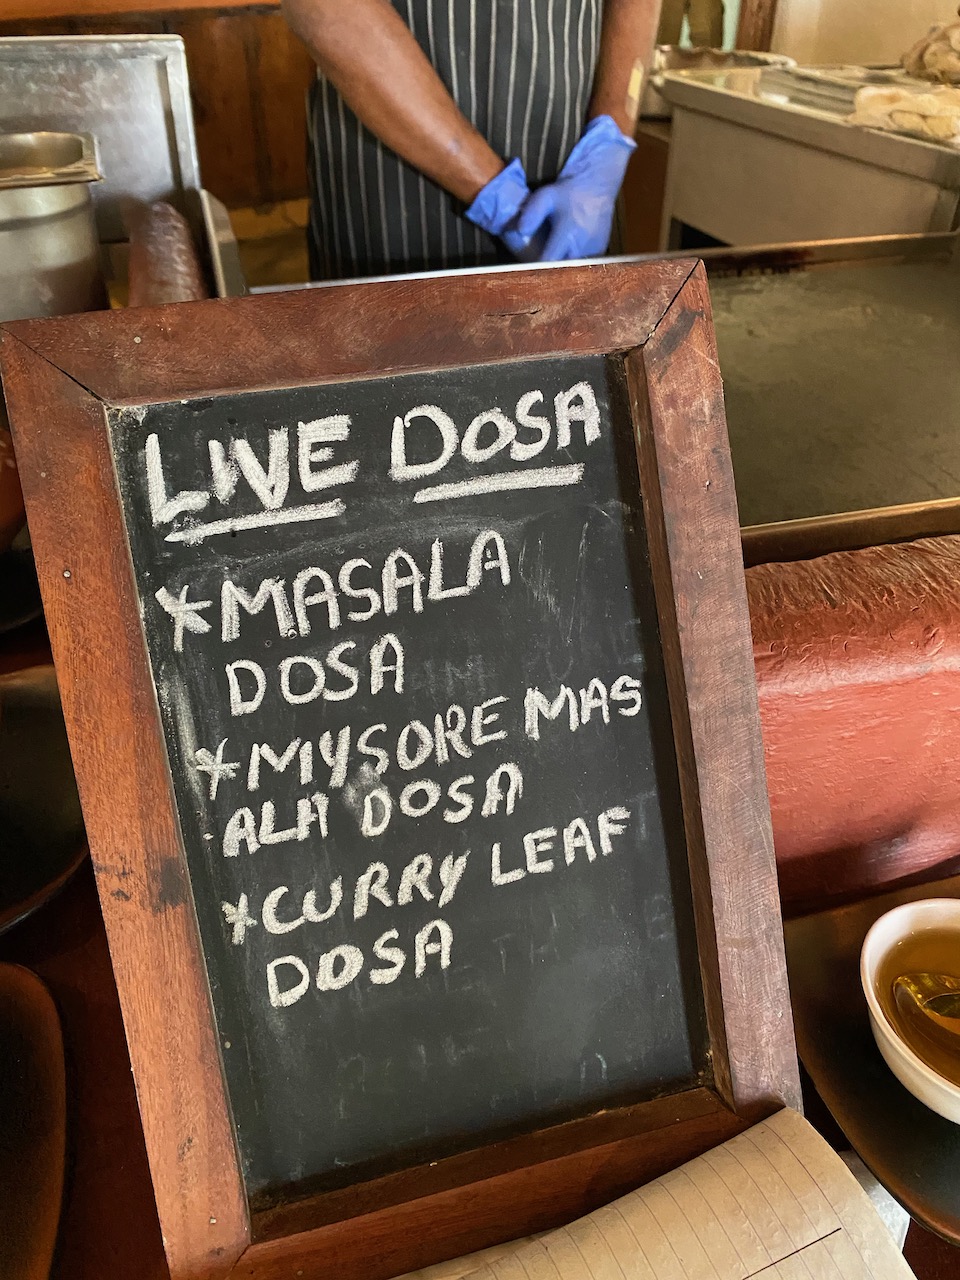 LIVE DOSA
*MASALA
DOSA
*MYSORE MAS
ALA DOSA
*CURRY LEAF
DOSA